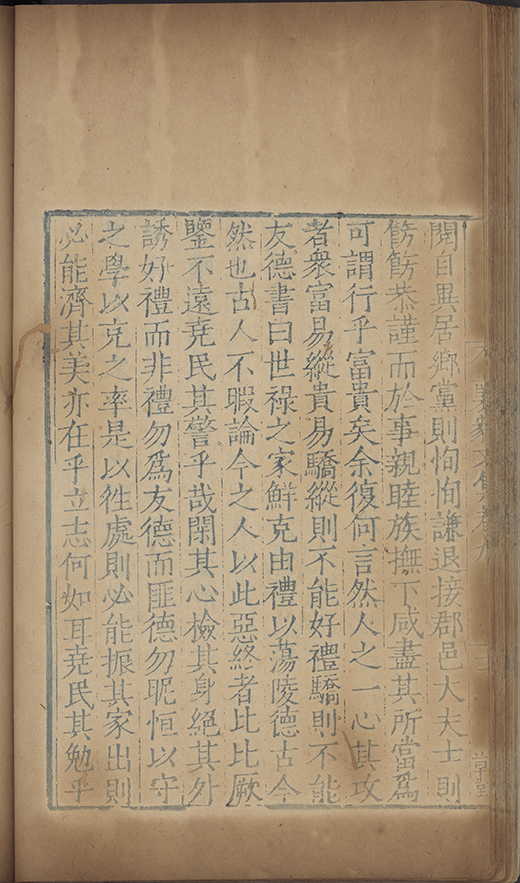 閥自異居鄉黨則恂恂謙退接郡邑大夫士則
飭飭恭謹而於事親睦族撫下咸盡其所當爲
可謂行乎富貴矣余復何言然人之一心其攻
者衆富易縱貴易驕縱則不能好禮驕則不能
友德書曰世祿之家鮮克由禮以蕩陵德古今
然也古人不暇論今之人以此惡終者比比厥
鑒不遠堯民其警乎哉閑其心檢其身絕其外
誘好禮而非禮勿爲友德而匪德勿昵恒以守
之學以克之率是以徃處則必能振其家出則
必能濟其美亦在乎立志何如耳堯民其勉乎